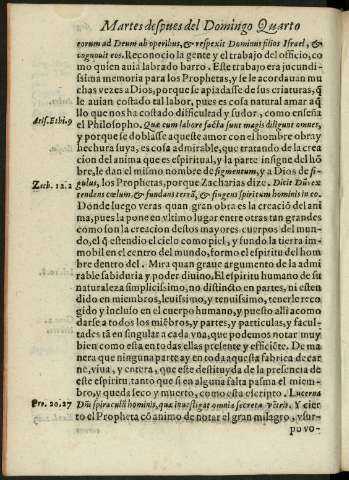 Martes despues del Domingo Quarto
eorum ad Deum ab operibus, & respexit Dominus filios Israel, &
cognouit eos. Reconocio la gente y el trabajo del officio, co
mo quien auia labrado barro. Este trabajo era jucundi-
ssima memoria para los Prophetas, y se le acordauan mu
chas vezes a Dios, porque se apiadasse de sus criaturas, q̃
le auian costado tal labor, pues es cosa natural amar aq̃
llo que nos ha costado difficultad y sudor, como enseña
Arist. Ethi. 9
el Philosopho. Quæ cum labore facta sunt magis diligunt omnes,
y porque se doblasse aqueste amor con el hombre obra y
hechura suya, es cosa admirable, que tratando de la crea
cion del anima que es espiritual, y la parte insigne del hõ
bre, le dan el mismo nombre de figmentum, y a Dios de fi-
Zach. 12. 2
gulus, los Prophetas, porque Zacharias dize. Dicit Dñs ex
tendens cælum, & fundans terrã, & fingens spiritum hominis in eo.
Donde luego veras quan gran obra es la creació del ani
ma, pues la pone en vltimo lugar entre otras tan grandes
cómo son la creacion destos mayores cuerpos del mun-
do, el q̃ estendio el cielo como piel, y fundo la tierra im-
mobil en el centro del mundo, formo el espiritu del hom
bre dentro del. Mira quan graue argumento de la admi
rable sabiduria y poder diuino, El espiritu humano de su
naturaleza simplicissimo, no distincto en partes, ni esten
dido en miembros, leuissimo, y tenuissimo, tenerle reco
gido y incluso en el cuerpo humano, y puesto alli acomo
darse a todos los miẽbros, y partes, y particulas, y facul-
tades tã en singular a cada vna, que podemos notar muy
bien como esta en todas ellas presente y efficiẽte. De ma
nera que ninguna parte ay en toda aquesta fabrica de car
ne, viua, y entera, que este destituyda de la presencia de
este espiritu, tanto que si en alguna falta pasma el miem-
bro, y queda seco y muerto, como esta escripto. Lucerna
Pro. 20. 27
Dñi spiraculũ hominis, quæ inuestigat omnia secreta vẽtris. Y cier
to el Propheta cõ animo de notar el gran milagro, y sur-
po vo-